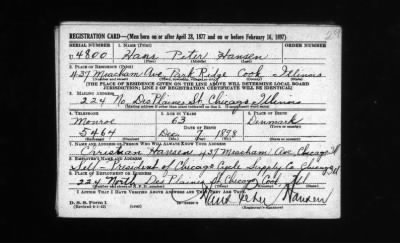 REGISTRATION CARD—(Men born on or after April 28, 1877 and on or before February 16, 1897)
SERIAL NUMBER 1. NAME (Print) ORDER NUMBER
U 4800 Hans Peter Hansen
(First) (Middle) (Last)
2. PLACE OF RESIDENCE (Print)
437 Meacham Ave Park Ridge Cook Illinois
(Number and street) (Town, township, village, or city) (County) (State)
[THE PLACE OF RESIDENCE GIVEN ON THE LINE ABOVE WILL DETERMINE LOCAL BOARD
JURISDICTION; LINE 2 OF REGISTRATION CERTIFICATE WILL BE IDENTICAL]
3. MAILING ADDRESS
224 No. DesPlaines St. Chicago Illinois
4. TELEPHONE 5. AGE IN YEARS 6. PLACE OF BIRTH
Monroe 63 Denmark
DATE OF BIRTH
5464 Dec 7 1878
7. NAME AND ADDRESS OF PERSON WHO WILL ALWAYS KNOW YOUR ADDRESS
Christian Hansen 437 Meacham Ave. Chicago Ill
8. EMPLOYER'S NAME AND ADDRESS
Self-President of Chicago Cycle Supply Co Chicago Ill
9. PLACE OF EMPLOYMENT OR BUSINESS
224 North Des Plaines St. Chicago Cook Ill
I AFFIRM THAT I HAVE VERIFIED ABOVE ANSWERS AND THAT THEY ARE TRUE.
Hans Peter Hansen
D. S. S. Form 1
(Registrant's signature)